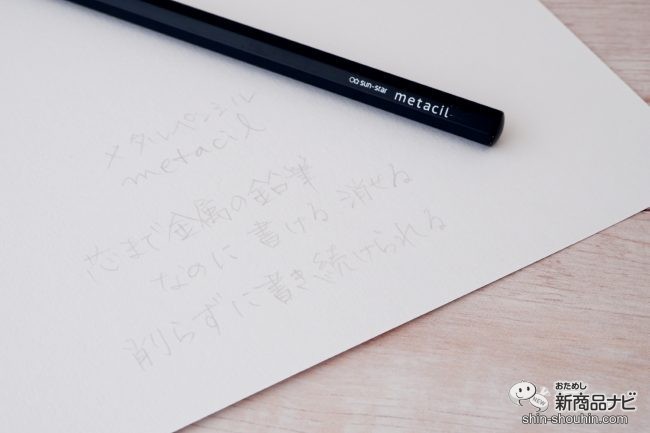 sun-star metacil
メタルペンシル
metacil
芯まで金属の鉛筆
なのに書ける消せる
削らずに書き続けられる
おためし
新商品ナビ
NEW
shin-shouhin.com